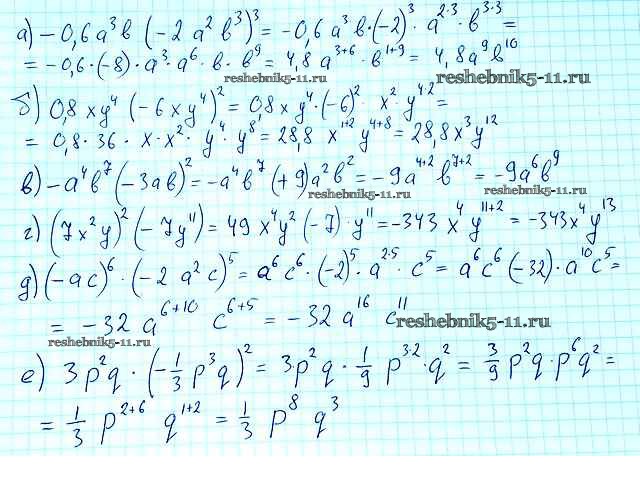 а) −0,6a³b (−2a²b³)³ = −0,6a³b·(−2)³·a²·³·b³·³ =
= −0,6·(−8)·a³·a⁶·b·b⁹ = 4,8a³⁺⁶·b¹⁺⁹ = 4,8a⁹b¹⁰
reshebnik5-11.ru reshebnik5-11.ru
б) 0,8xy⁴ (−6xy⁴)² = 0,8xy⁴·(−6)²·x²·y⁴·² =
= 0,8·36·x·x²·y⁴·y⁸ = 28,8x¹⁺²y⁴⁺⁸ = 28,8x³y¹²
reshebnik5-11.ru
в) −a⁴b⁷(−3ab)² = −a⁴b⁷(+9)a²b² = −9a⁴⁺²b⁷⁺² = −9a⁶b⁹
reshebnik5-11.ru reshebnik5-11.ru
г) (7x²y)²(−7y¹¹) = 49x⁴y²(−7)·y¹¹ = −343x⁴y¹¹⁺² = −343x⁴y¹³
д) (−ac)⁶·(−2a²c)⁵ = a⁶c⁶·(−2)⁵·a²·⁵·c⁵ = a⁶c⁶(−32)·a¹⁰c⁵ =
= −32a⁶⁺¹⁰c⁶⁺⁵ = −32a¹⁶c¹¹
reshebnik5-11.ru reshebnik5-11.ru
е) 3p²q·(−1/3p³q)² = 3p²q·1/9p³·²·q² = 3/9p²q·p⁶q² =
= 1/3p²⁺⁶q¹⁺² = 1/3p⁸q³